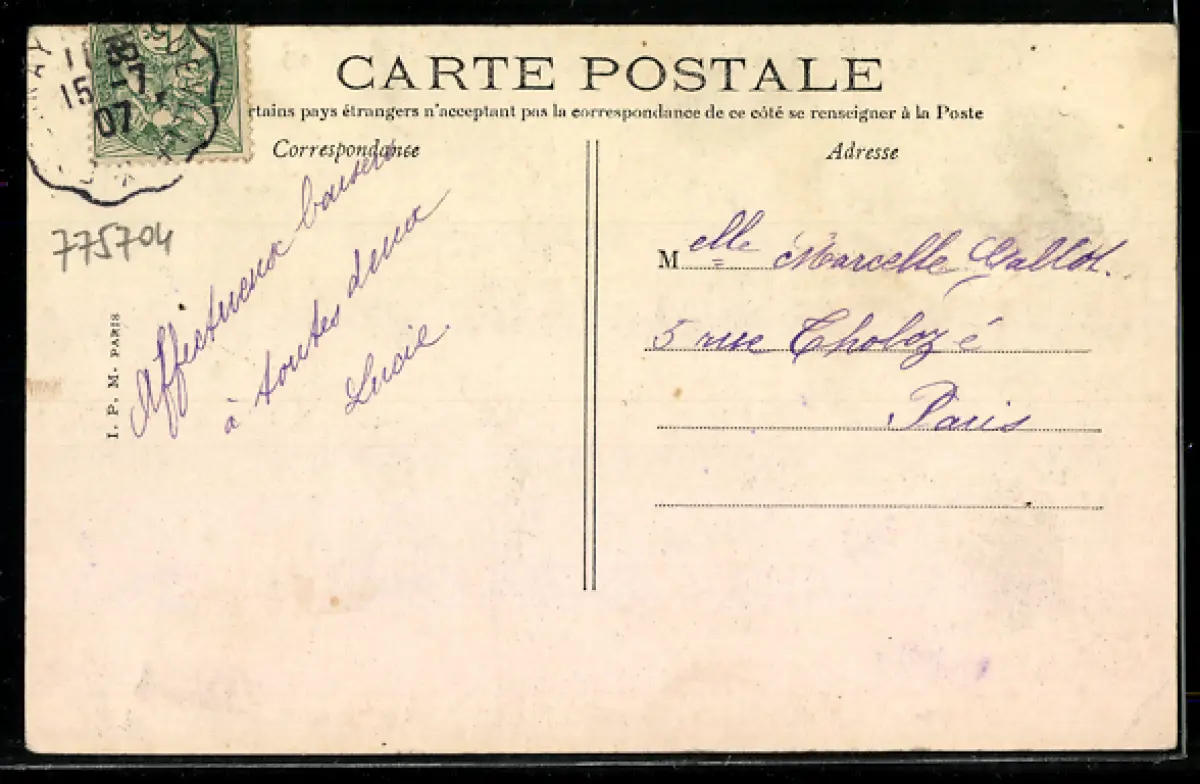 11
15 -7
07
CARTE POSTALE
rtains pays étrangers n'acceptant pas la correspondance de ce côté se renseigner à la Poste
Correspondance
Adresse
775704
I. P. M. PARIS
Affectueux baisers
à toutes deux
Lucie.
Melle Marcelle Gallot.
5 rue Tholozé
Paris